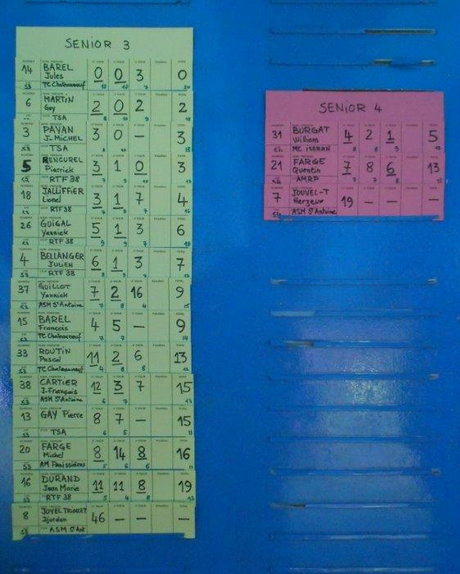 SENIOR 3
14 BAREL 0 0 3 0
Jules
S3 TC Chateauneuf
6 MARTIN 2 0 2 2
Guy
TSA
3 PAVAN 3 0 — 3
J. Michel
S3 TSA
5 RENCUREL 3 1 0 3
Pierrick
RTF 38
18 JALLIFFIER 3 1 7 4
Lionel
RTF 38
26 GUIGAL 5 1 3 6
Yannick
S3 RTF 38
4 BELLANGER 6 1 3 7
Julien
S3 RTF 38
37 GUILLOT 7 2 16 9
Yannick
ASM St Antoine
15 BAREL 4 5 — 9
François
TC Chateauneuf
33 ROUTIN 11 2 6 13
Pascal
TC Chateauneuf
38 CARTIER 12 3 7 15
J. François
ASM St Antoine
13 GAY Pierre 8 7 — 15
TSA
20 FARGE 8 14 8 16
Michel
S3 AM
16 DURAND 11 11 8 19
Jean Marie
RTF 38
8 46 — — —
Djordan
ASM St Ant
SENIOR 4
31 BURGAT 4 2 1 5
William
MC
21 FARGE 7 8 6 13
Quentin
AMRP
7 JOUVEL-T 19 — — —
ASM St Antoine